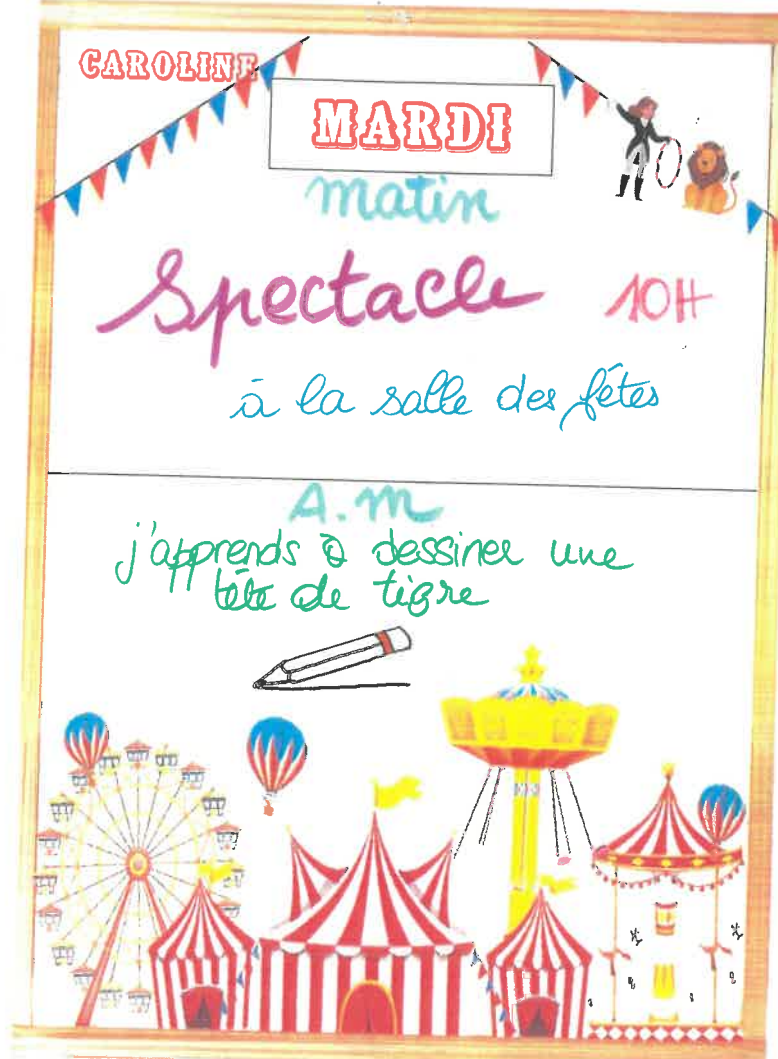 CAROLINE
MARDI
matin
Spectacle 10H
à la salle des fêtes
A.m
j'apprends à dessiner une
tête de tigre